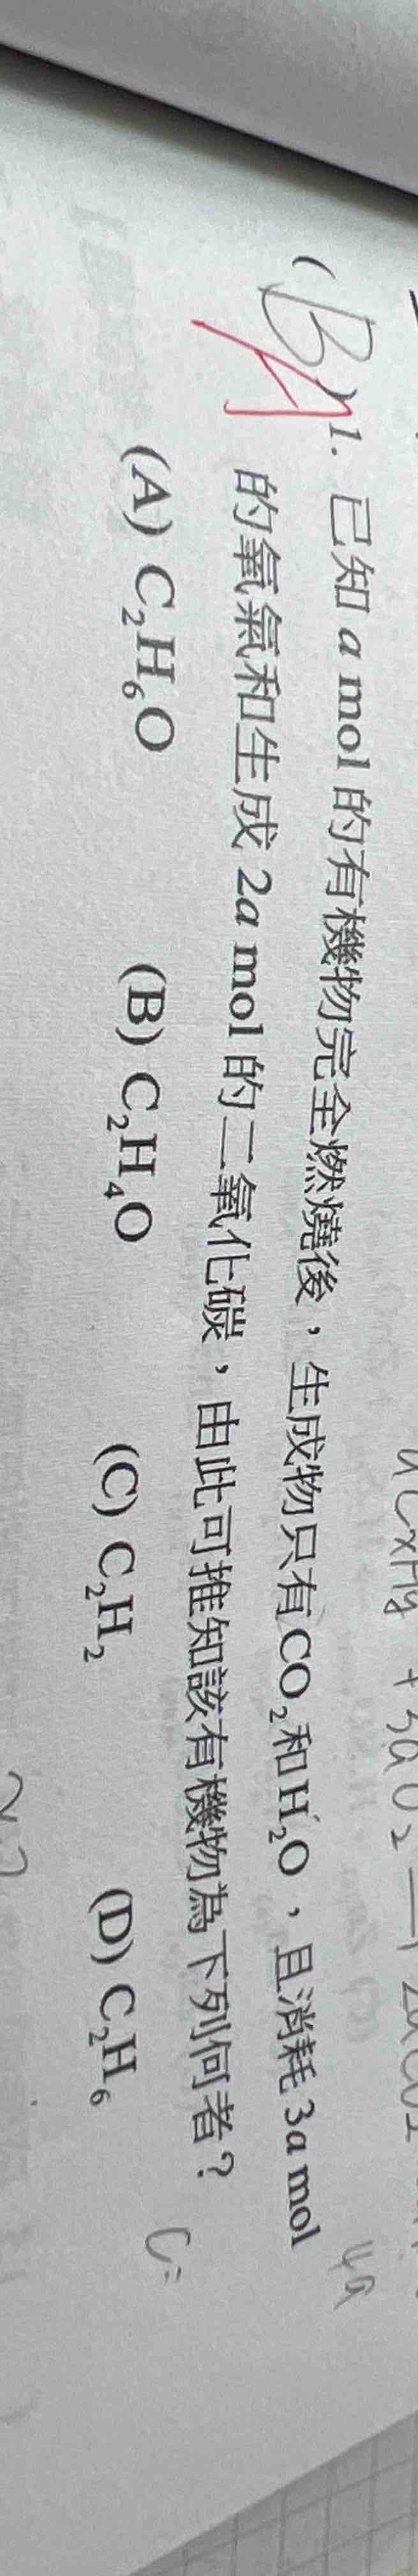 aCxHy + 3aO₂ → 2aCO₂
4a
( B ) 1. 已知 a mol 的有機物完全燃燒後，生成物只有CO₂和H₂O，且消耗 3a mol
A
的氧氣和生成 2a mol 的二氧化碳，由此可推知該有機物為下列何者？
C=
(A) C₂H₆O (B) C₂H₄O (C) C₂H₂ (D) C₂H₆